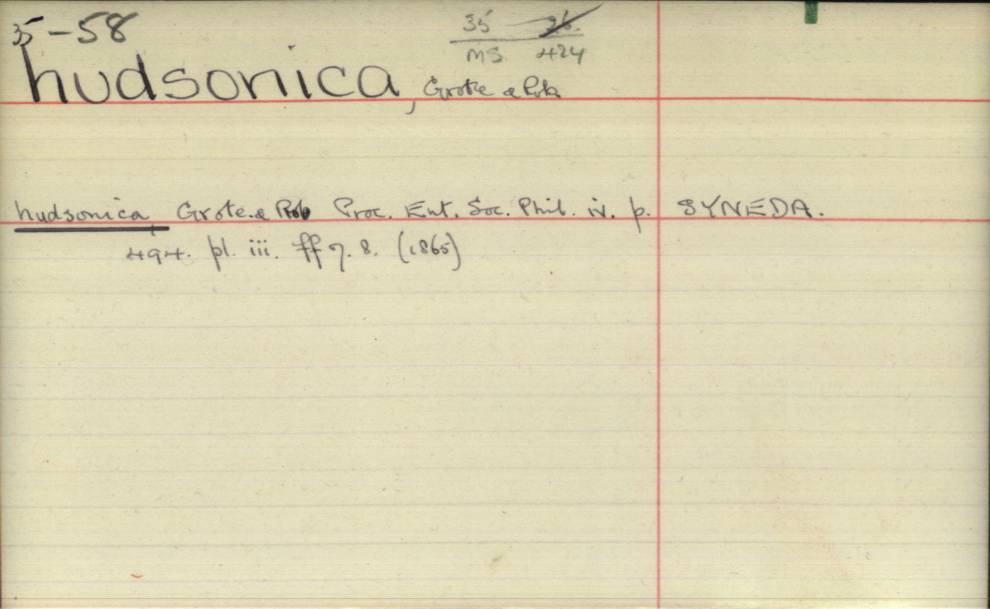 35-58
35 26.
MS 424
hudsonica, Grote & Rob.
hudsonica, Grote & Rob Proc. Ent. Soc. Phil. iv. p. SYNEDA.
494. pl. iii. ff 7. 8. (1865)